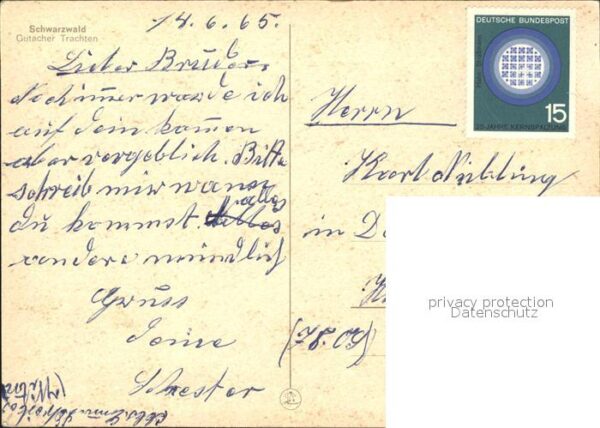 Schwarzwald
Gutacher Trachten
14.6.65.
Lieber Bruder.
Noch immer warde ich
auf dein komen
aber vergeblich. Bitte
schreib mir wann
du kommst. alles
andere mündlich
Gruss
Deine
Schwester
DEUTSCHE BUNDESPOST
15
25 JAHRE KERNSPALTUNG
Herrn
Karl Nübling
in
privacy protection
Datenschutz